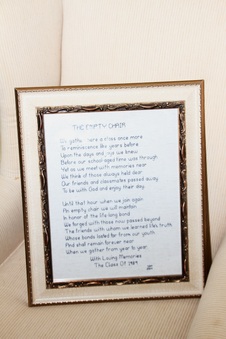 THE EMPTY CHAIR
We gather here a class once more
To reminiscence like years before
Upon the days and joys we knew
Before our school aged time was through
Yet as we meet with memories near
We think of those always held dear
Our friends and classmates passed away
To be with God and enjoy their day.
Until that hour when we join again
An empty chair we will maintain
In honor of the life long bond
We forged with those now passed beyond
The friends with whom we learned life's truth
Whose bonds lasted far from our youth
And shall remain forever near
When we gather from year to year.
With Loving Memories
The Class Of 1964